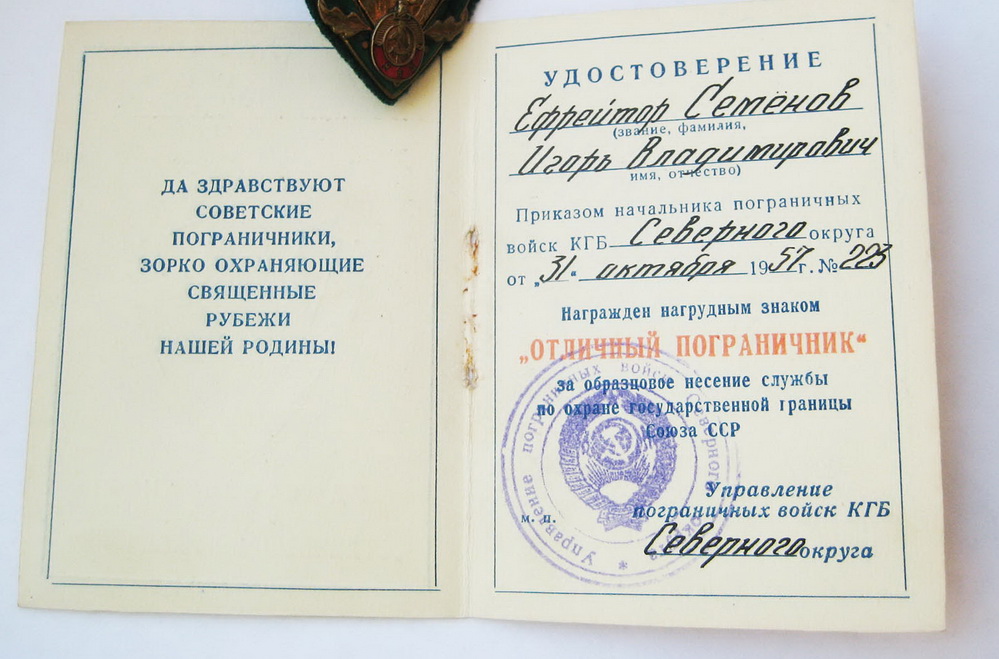 ДА ЗДРАВСТВУЮТ
СОВЕТСКИЕ
ПОГРАНИЧНИКИ,
ЗОРКО ОХРАНЯЮЩИЕ
СВЯЩЕННЫЕ
РУБЕЖИ
НАШЕЙ РОДИНЫ!
УДОСТОВЕРЕНИЕ
Ефрейтор Семёнов
(звание, фамилия,
Игорь Владимирович
имя, отчество)
Приказом начальника пограничных
войск КГБ Северного округа
от „31“ октября 1957 г. № 223
Награжден нагрудным знаком
„ОТЛИЧНЫЙ ПОГРАНИЧНИК“
за образцовое несение службы
по охране государственной границы
Союза ССР
м. п.
Управление
пограничных войск КГБ
Северного округа
Управление пограничных войск Северного округа *